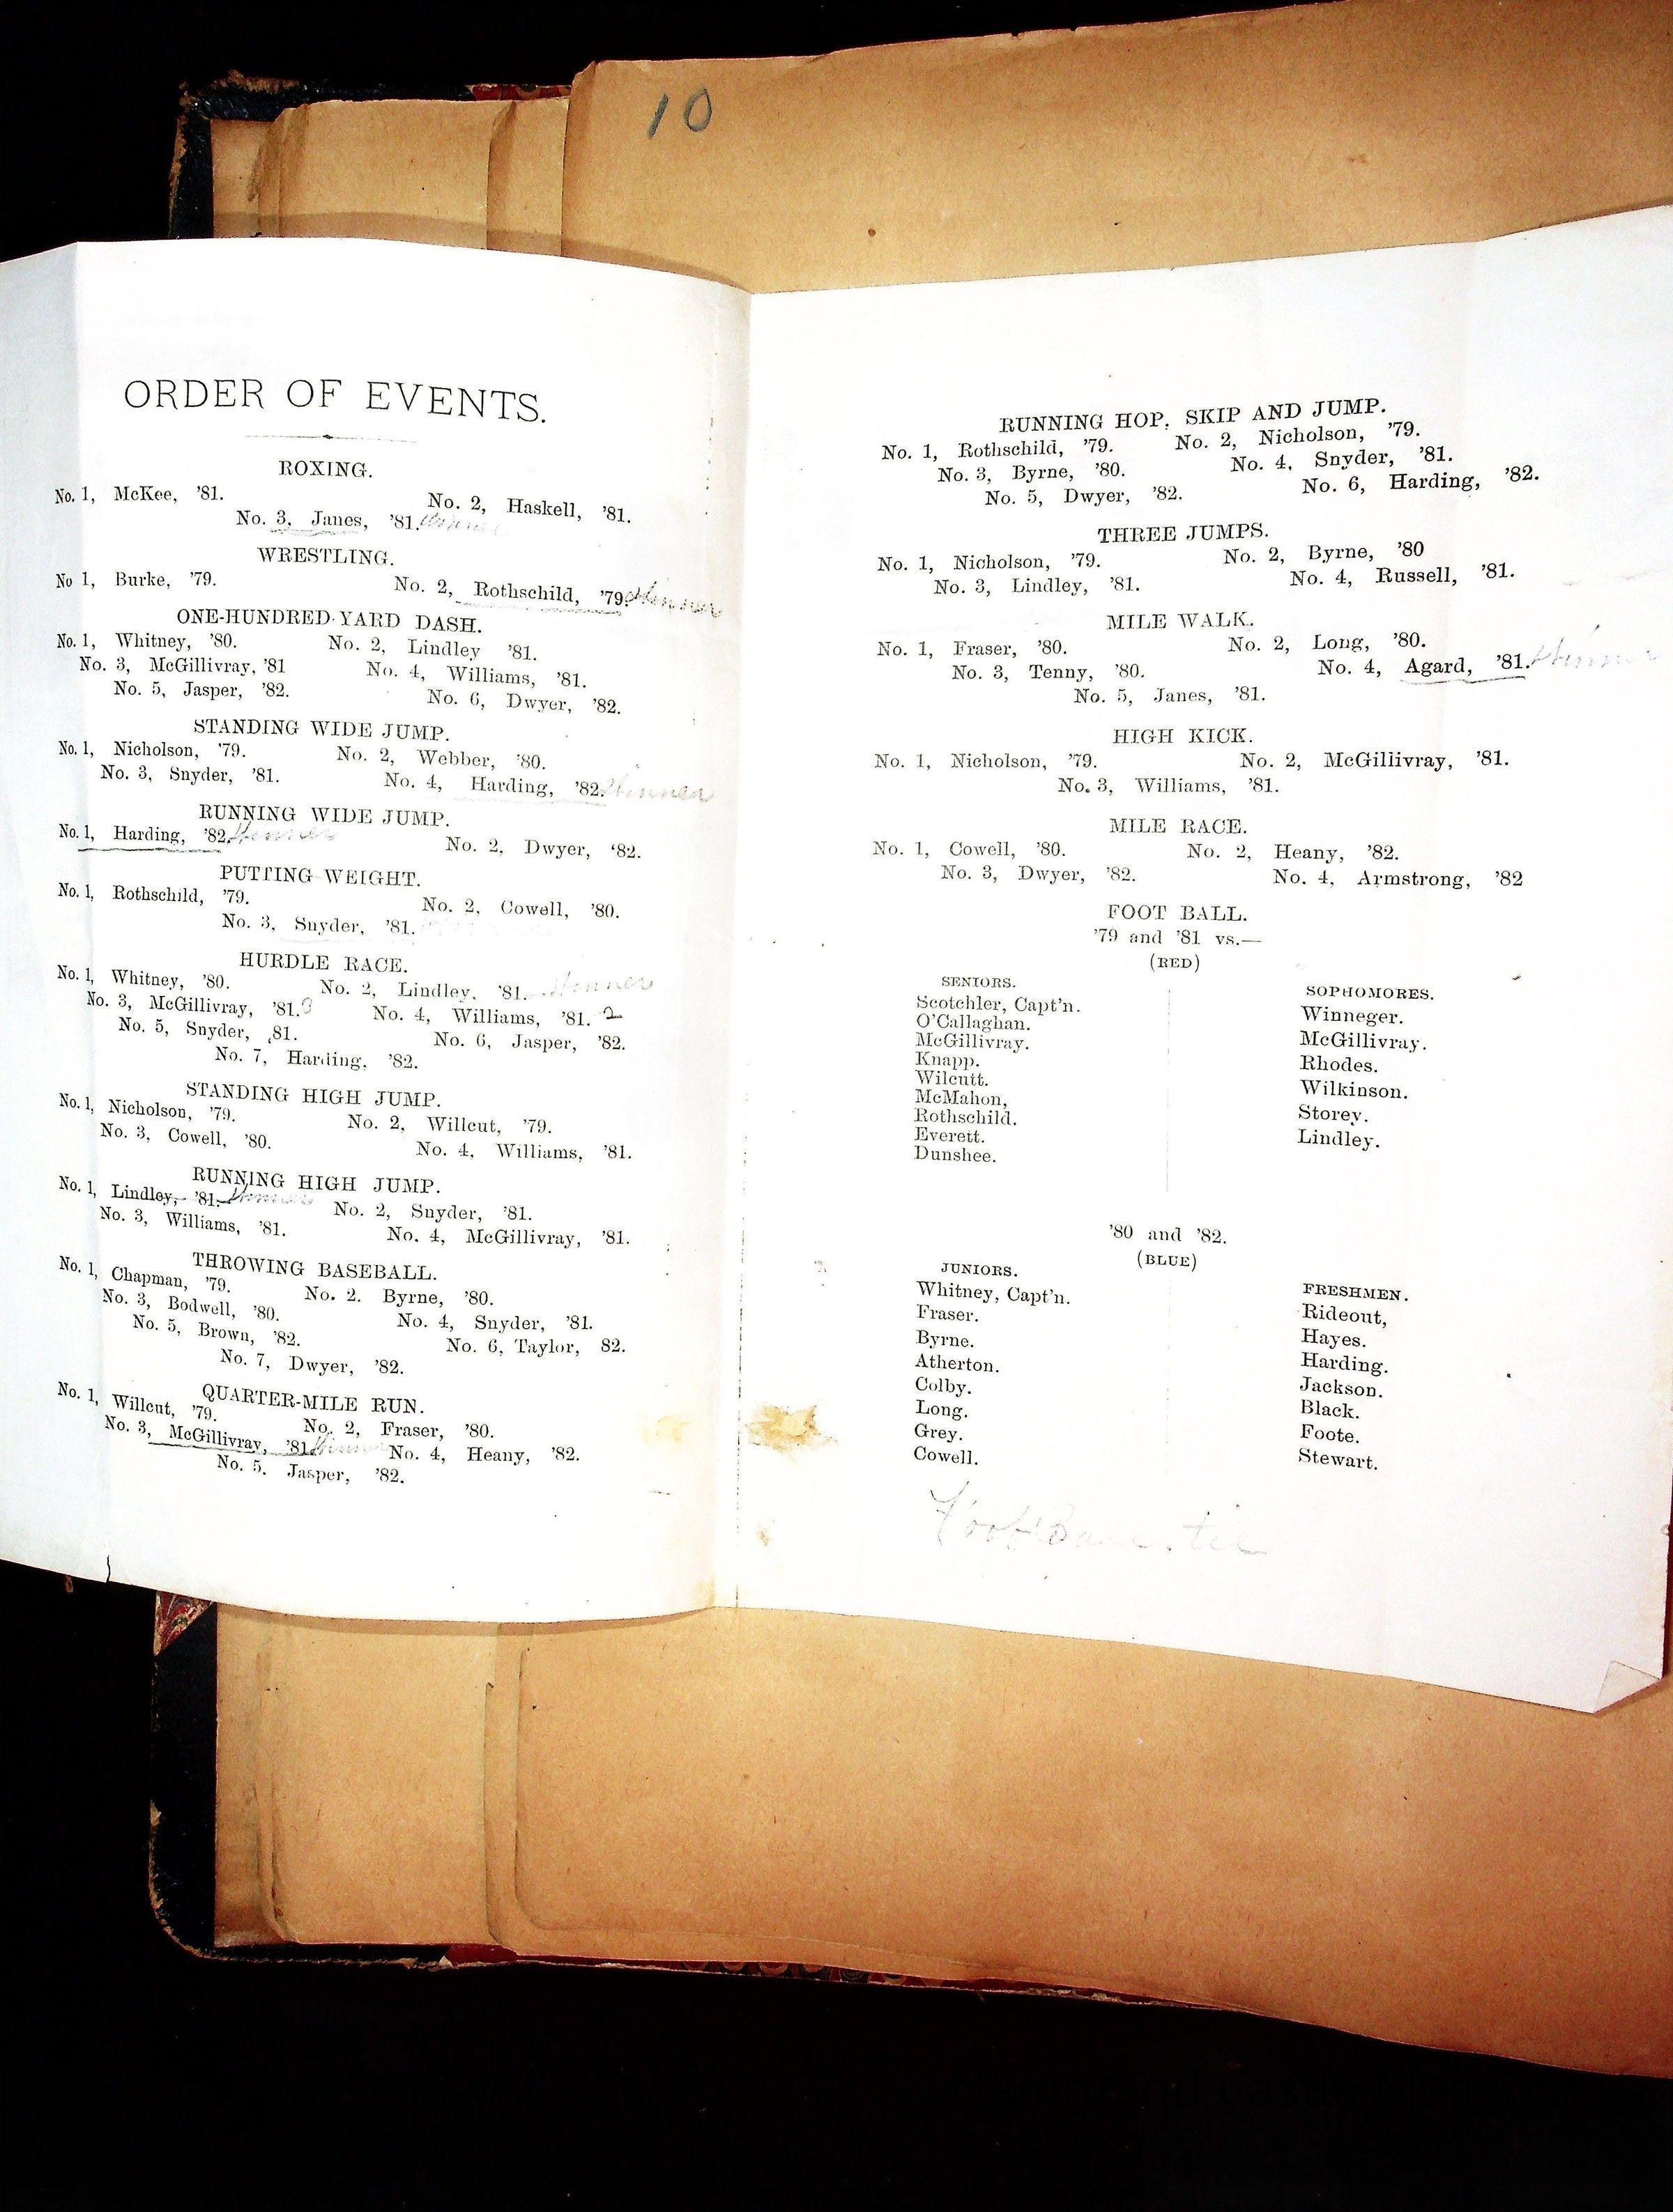 10
ORDER OF EVENTS.
ROXING.
No. 1, McKee, '81. No. 2, Haskell, '81.
No. 3, Janes, '81. Winner
WRESTLING.
No 1, Burke, '79. No. 2, Rothschild, '79. Winner
ONE-HUNDRED-YARD DASH.
No. 1, Whitney, '80. No. 2, Lindley '81.
No. 3, McGillivray, '81 No. 4, Williams, '81.
No. 5, Jasper, '82. No. 6, Dwyer, '82.
STANDING WIDE JUMP.
No. 1, Nicholson, '79. No. 2, Webber, '80.
No. 3, Snyder, '81. No. 4, Harding, '82. Winner
RUNNING WIDE JUMP.
No. 1, Harding, '82. Winner No. 2, Dwyer, '82.
PUTTING WEIGHT.
No. 1, Rothschild, '79. No. 2, Cowell, '80.
No. 3, Snyder, '81.
HURDLE RACE.
No. 1, Whitney, '80. No. 2, Lindley, '81. Winner
No. 3, McGillivray, '81. 3 No. 4, Williams, '81. 2
No. 5, Snyder, ,81. No. 6, Jasper, '82.
No. 7, Harding, '82.
STANDING HIGH JUMP.
No. 1, Nicholson, '79. No. 2, Willcut, '79.
No. 3, Cowell, '80. No. 4, Williams, '81.
RUNNING HIGH JUMP.
No. 1, Lindley, '81. Winner No. 2, Snyder, '81.
No. 3, Williams, '81. No. 4, McGillivray, '81.
THROWING BASEBALL.
No. 1, Chapman, '79. No. 2. Byrne, '80.
No. 3, Bodwell, '80. No. 4, Snyder, '81.
No. 5, Brown, '82. No. 6, Taylor, 82.
No. 7, Dwyer, '82.
QUARTER-MILE RUN.
No. 1, Willcut, '79. No. 2, Fraser, '80.
No. 3, McGillivray, '81 Winner No. 4, Heany, '82.
No. 5. Jasper, '82.
RUNNING HOP, SKIP AND JUMP.
No. 1, Rothschild, '79. No. 2, Nicholson, '79.
No. 3, Byrne, '80. No. 4, Snyder, '81.
No. 5, Dwyer, '82. No. 6, Harding, '82.
THREE JUMPS.
No. 1, Nicholson, '79. No. 2, Byrne, '80
No. 3, Lindley, '81. No. 4, Russell, '81.
MILE WALK.
No. 1, Fraser, '80. No. 2, Long, '80.
No. 3, Tenny, '80. No. 4, Agard, '81. Winner
No. 5, Janes, '81.
HIGH KICK.
No. 1, Nicholson, '79. No. 2, McGillivray, '81.
No. 3, Williams, '81.
MILE RACE.
No. 1, Cowell, '80. No. 2, Heany, '82.
No. 3, Dwyer, '82. No. 4, Armstrong, '82
FOOT BALL.
'79 and '81 vs.—
(RED)
SENIORS.
Scotchler, Capt'n.
O'Callaghan.
McGillivray.
Knapp.
Wilcutt.
McMahon,
Rothschild.
Everett.
Dunshee.
SOPHOMORES.
Winneger.
McGillivray.
Rhodes.
Wilkinson.
Storey.
Lindley.
'80 and '82.
(BLUE)
JUNIORS.
Whitney, Capt'n.
Fraser.
Byrne.
Atherton.
Colby.
Long.
Grey.
Cowell.
FRESHMEN.
Rideout,
Hayes.
Harding.
Jackson.
Black.
Foote.
Stewart.
Foot Ball. tie